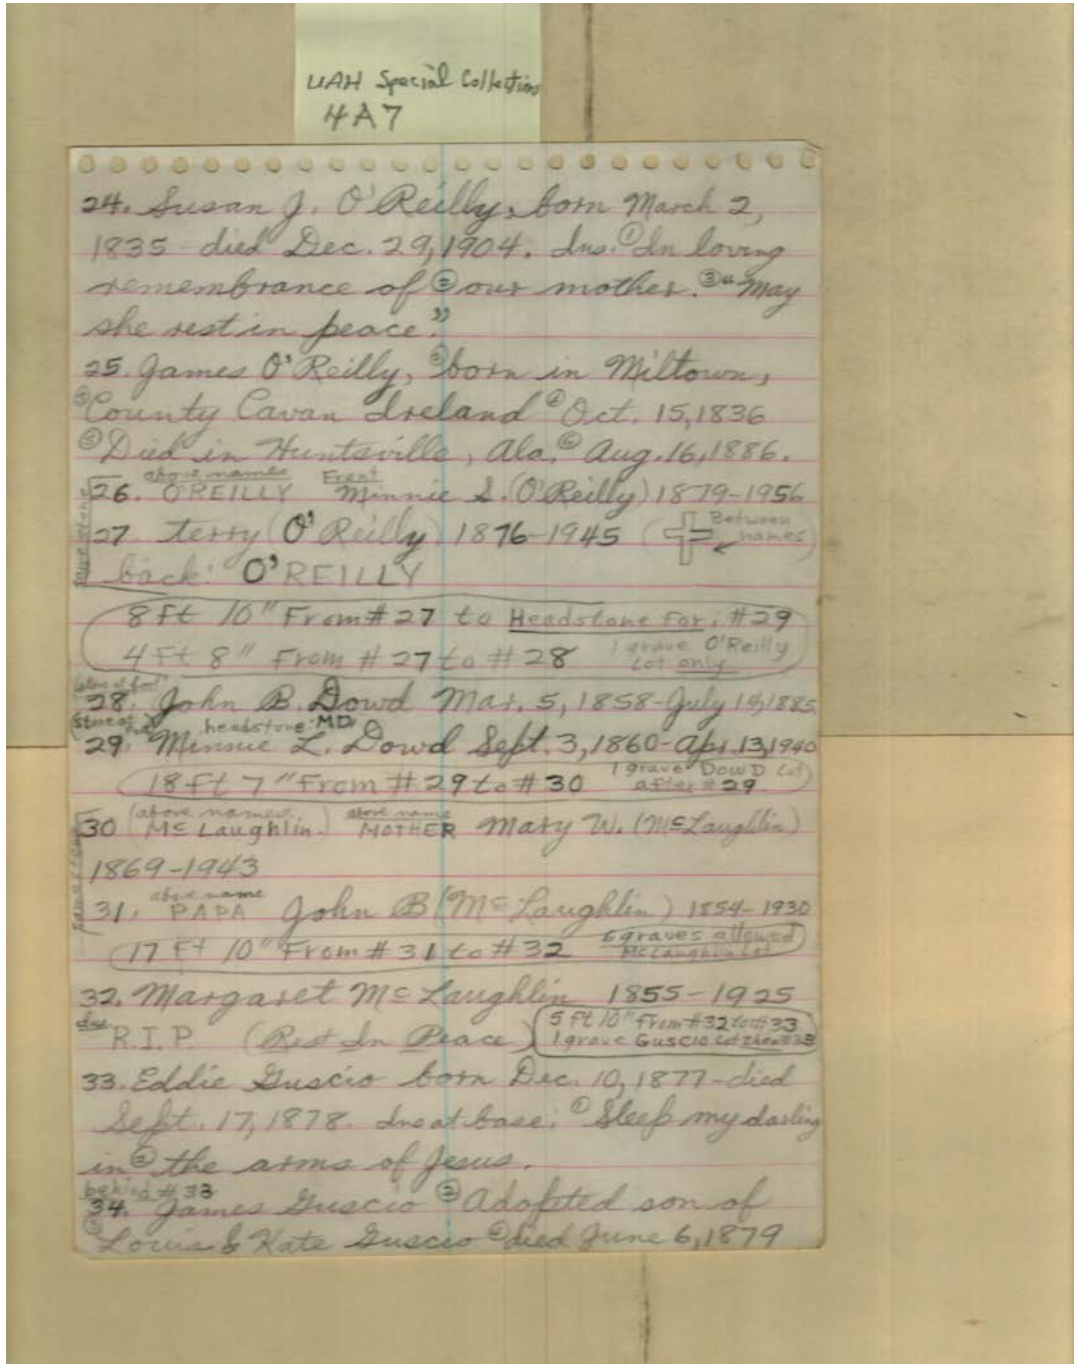 UAH Special Collections
4A7
24. Susan J. O'Reilly, born March 2,
1835 - died Dec. 29, 1904. Ins. ① In loving
remembrance of ② our mother. ③ "May
she rest in peace."
25. James O'Reilly, ② born in Miltown,
③ County Cavan Ireland ④ Oct. 15, 1836
⑤ Died in Huntsville, Ala. ⑥ Aug. 16, 1886.
above names Front
26. O'REILLY Minnie S. (O'Reilly) 1879-1956
27. Terry (O'Reilly) 1876-1945 (Between names)
same stone
back: O'REILLY
8 Ft 10" From # 27 to Headstone For: # 29
4 Ft 8" From # 27 to # 28 1 grave O'Reilly
Lot only
(stone at foot)
28. John B. Dowd Mar. 5, 1858 - July 1885
(stone at foot) headstone MD
29. Minnie L. Dowd Sept. 3, 1860 - Apr. 13, 1940
18 Ft 7" From # 29 to # 30 1 grave DOWD Lot
after # 29
(above names above name
30 McLaughlin.) MOTHER Mary W. (McLaughlin)
same stone
1869-1943
above name
31. PAPA John B (McLaughlin) 1854-1930
17 Ft 10" From # 31 to # 32 6 graves allowed
McLaughlin Lot
32. Margaret McLaughlin 1855-1925
Ins R.I.P. (Rest In Peace) 5 Ft 10" From # 32 to # 33
1 grave GUSCIO Lot then # 33
33. Eddie Guscio born Dec. 10, 1877 - died
Sept. 17, 1878. Ins at base: ① Sleep my darling
in ② the arms of Jesus.
behind # 33
34. James Guscio ② Adopted son of
③ Louis & Kate Guscio ④ died June 6, 1879